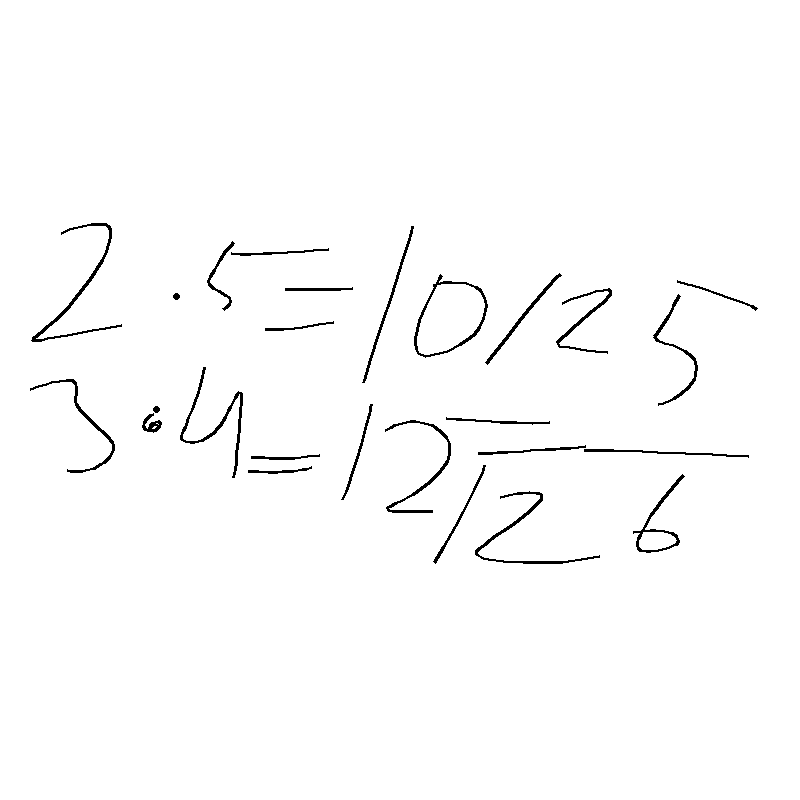 2 · 5 = 10 125
3 · 4 = 12 = 126